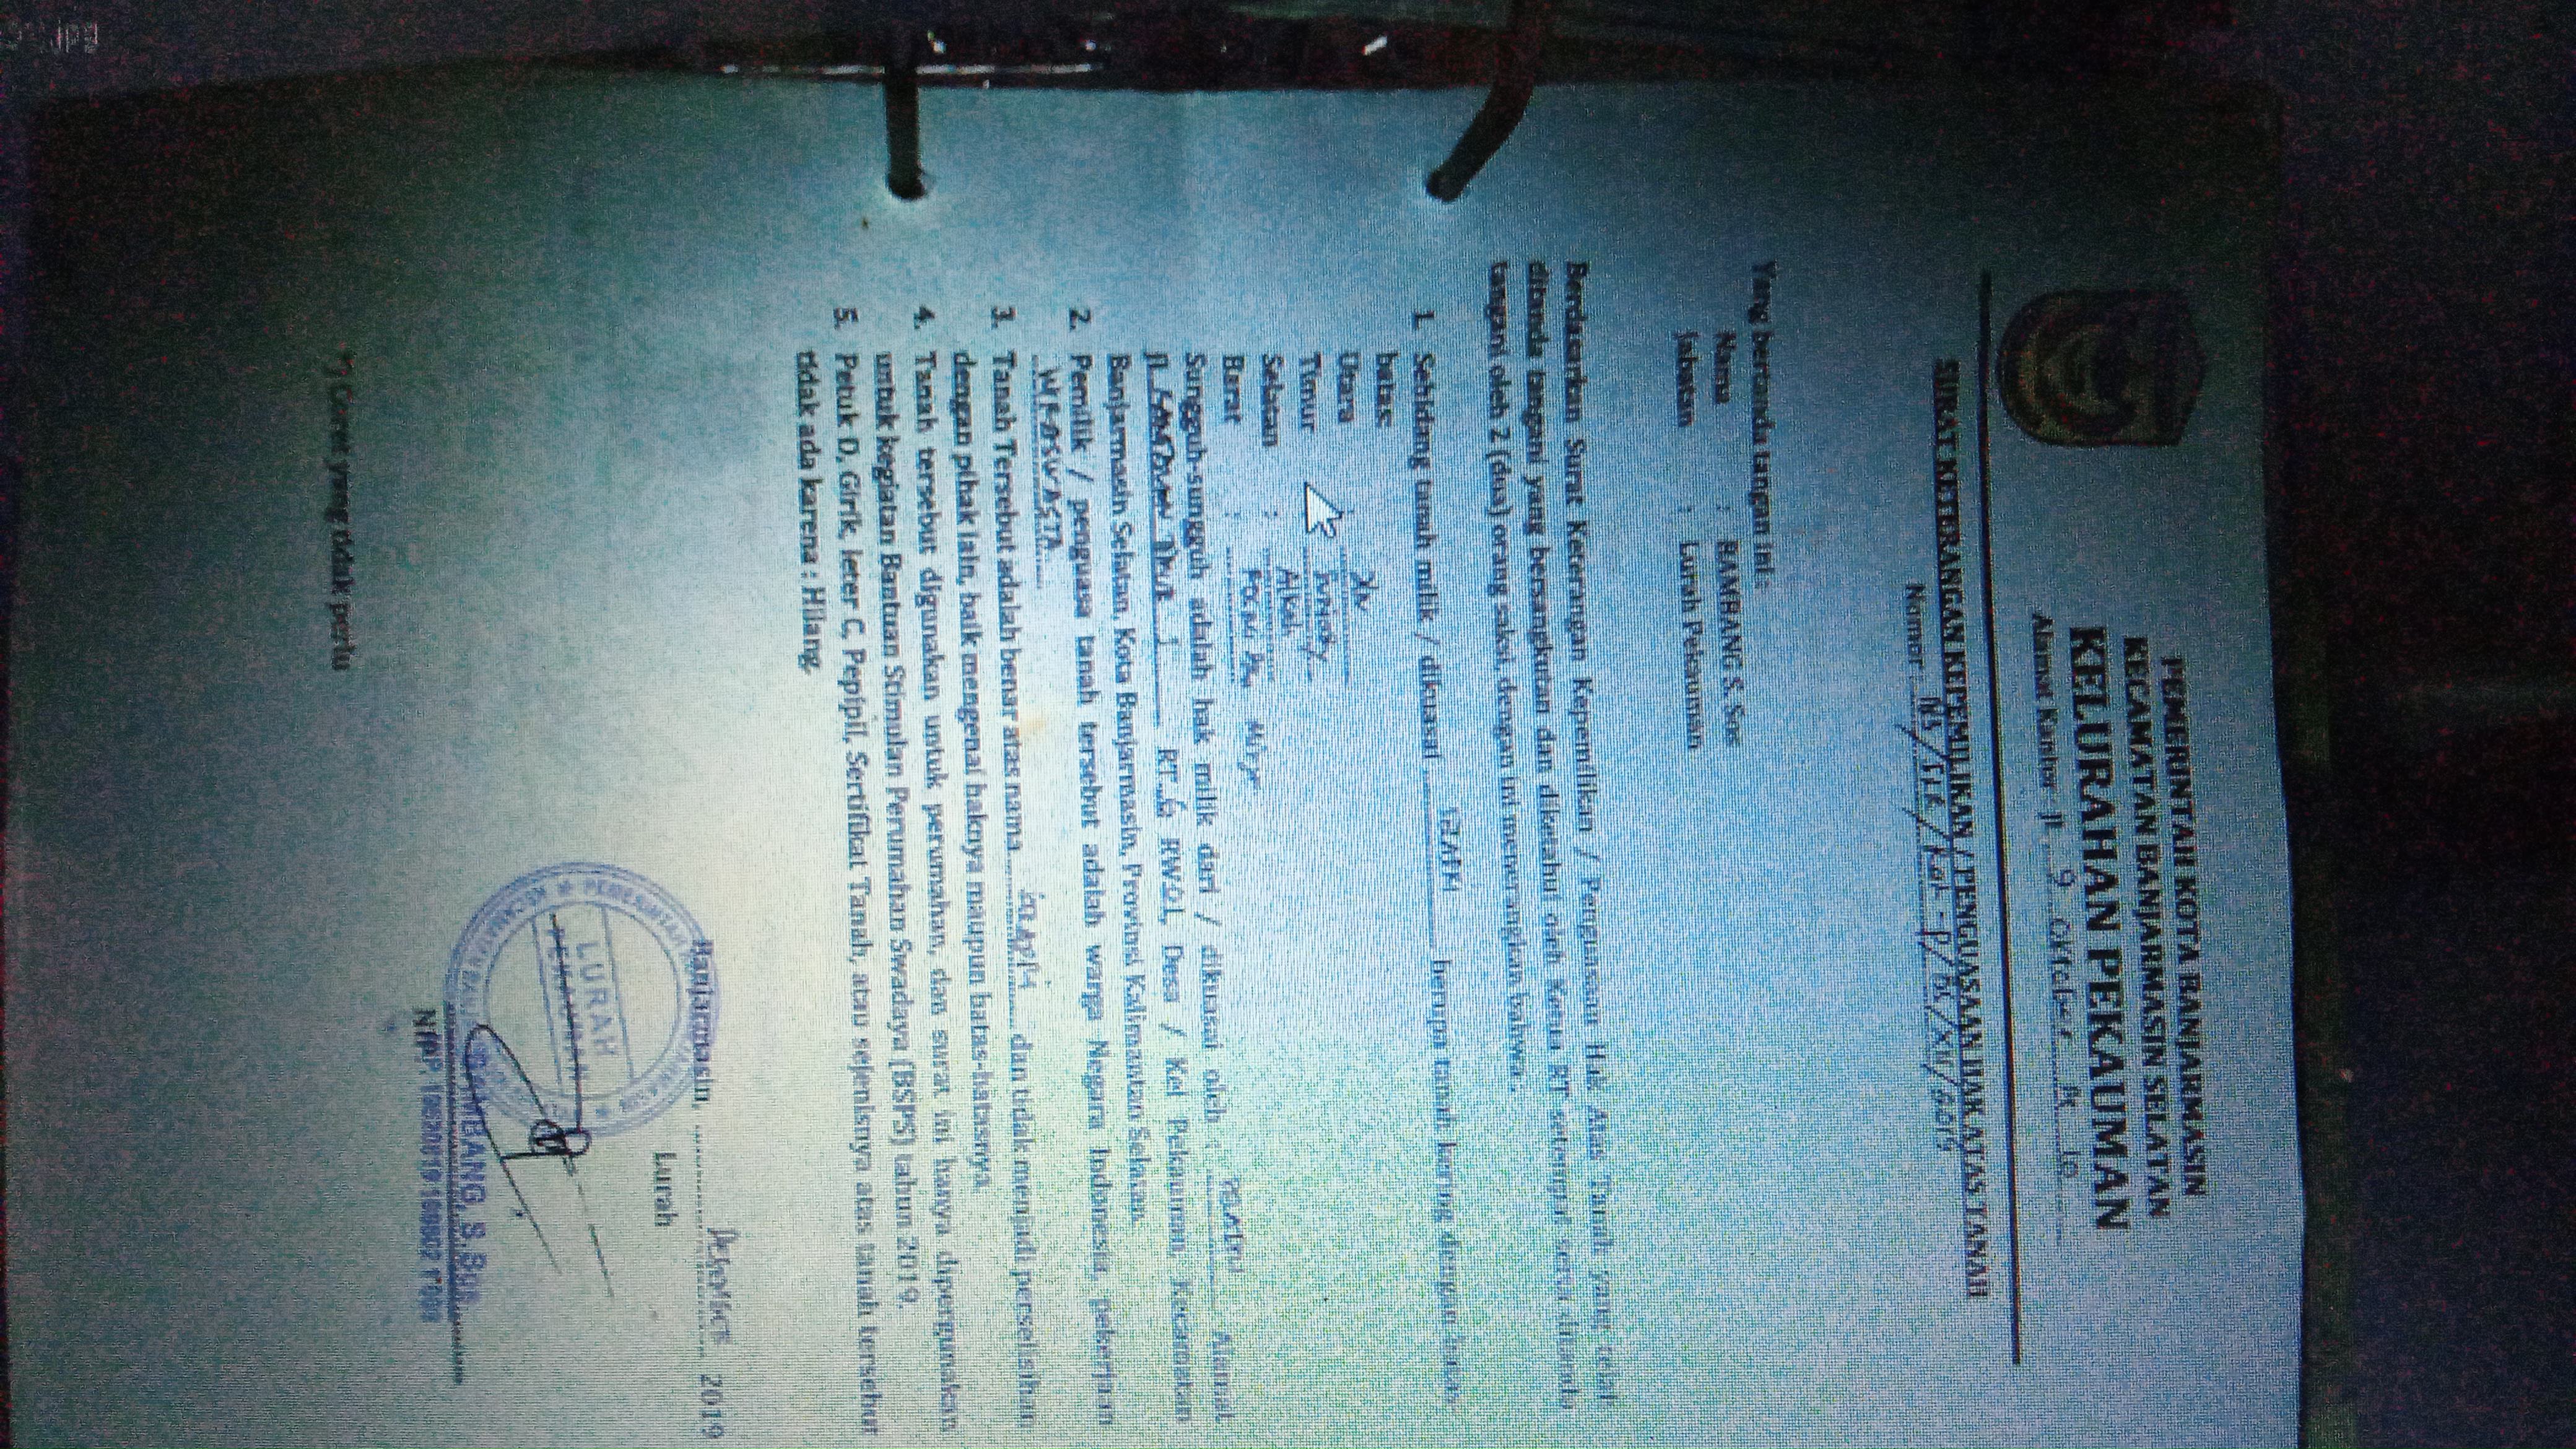 PEMERINTAH KOTA BANJARMASIN
KECAMATAN BANJARMASIN SELATAN
KELURAHAN PEKAUMAN
Alamat Kantor Jl. 9 Oktober Rt 10
SURAT KETERANGAN KEPEMILIKAN / PENGUASAAN HAK ATAS TANAH
Nomor :
Yang bertanda tangan ini :
Nama : BAMBANG S. Sos
Jabatan : Lurah Pekauman
Berdasarkan Surat Keterangan Kepemilikan / Penguasaan Hak Atas Tanah yang telah
ditanda tangani yang bersangkutan dan diketahui oleh Ketua RT setempat serta ditanda
tangani oleh 2 (dua) orang saksi, dengan ini menerangkan bahwa :
1. Sebidang tanah milik / dikuasai berupa tanah kering dengan batas-
batas
Utara : Jln
Timur
Selatan : Alkah
Barat :
Sungguh-sungguh adalah hak milik dari / dikuasai oleh : Alamat
Jl. RT. 6 RW 01, Desa / Kel Pekauman, Kecamatan
Banjarmasin Selatan, Kota Banjarmasin, Provinsi Kalimantan Selatan.
2. Pemilik / penguasa tanah tersebut adalah warga Negara Indonesia, pekerjaan
WIRASWASTA
3. Tanah Tersebut adalah benar atas nama dan tidak menjadi perselisihan
dengan pihak lain, baik mengenai haknya maupun batas-batasnya.
4. Tanah tersebut digunakan untuk perumahan, dan surat ini hanya dipergunakan
untuk kegiatan Bantuan Stimulan Perumahan Swadaya (BSPS) tahun 2019.
5. Petuk D, Girik, leter C, Pepipil, Sertifikat Tanah, atau sejenisnya atas tanah tersebut
tidak ada karena : Hilang.
Banjarmasin, Desember 2019
Lurah
LURAH
PEKAUMAN
BAMBANG, S.Sos
NIP
*) Coret yang tidak perlu